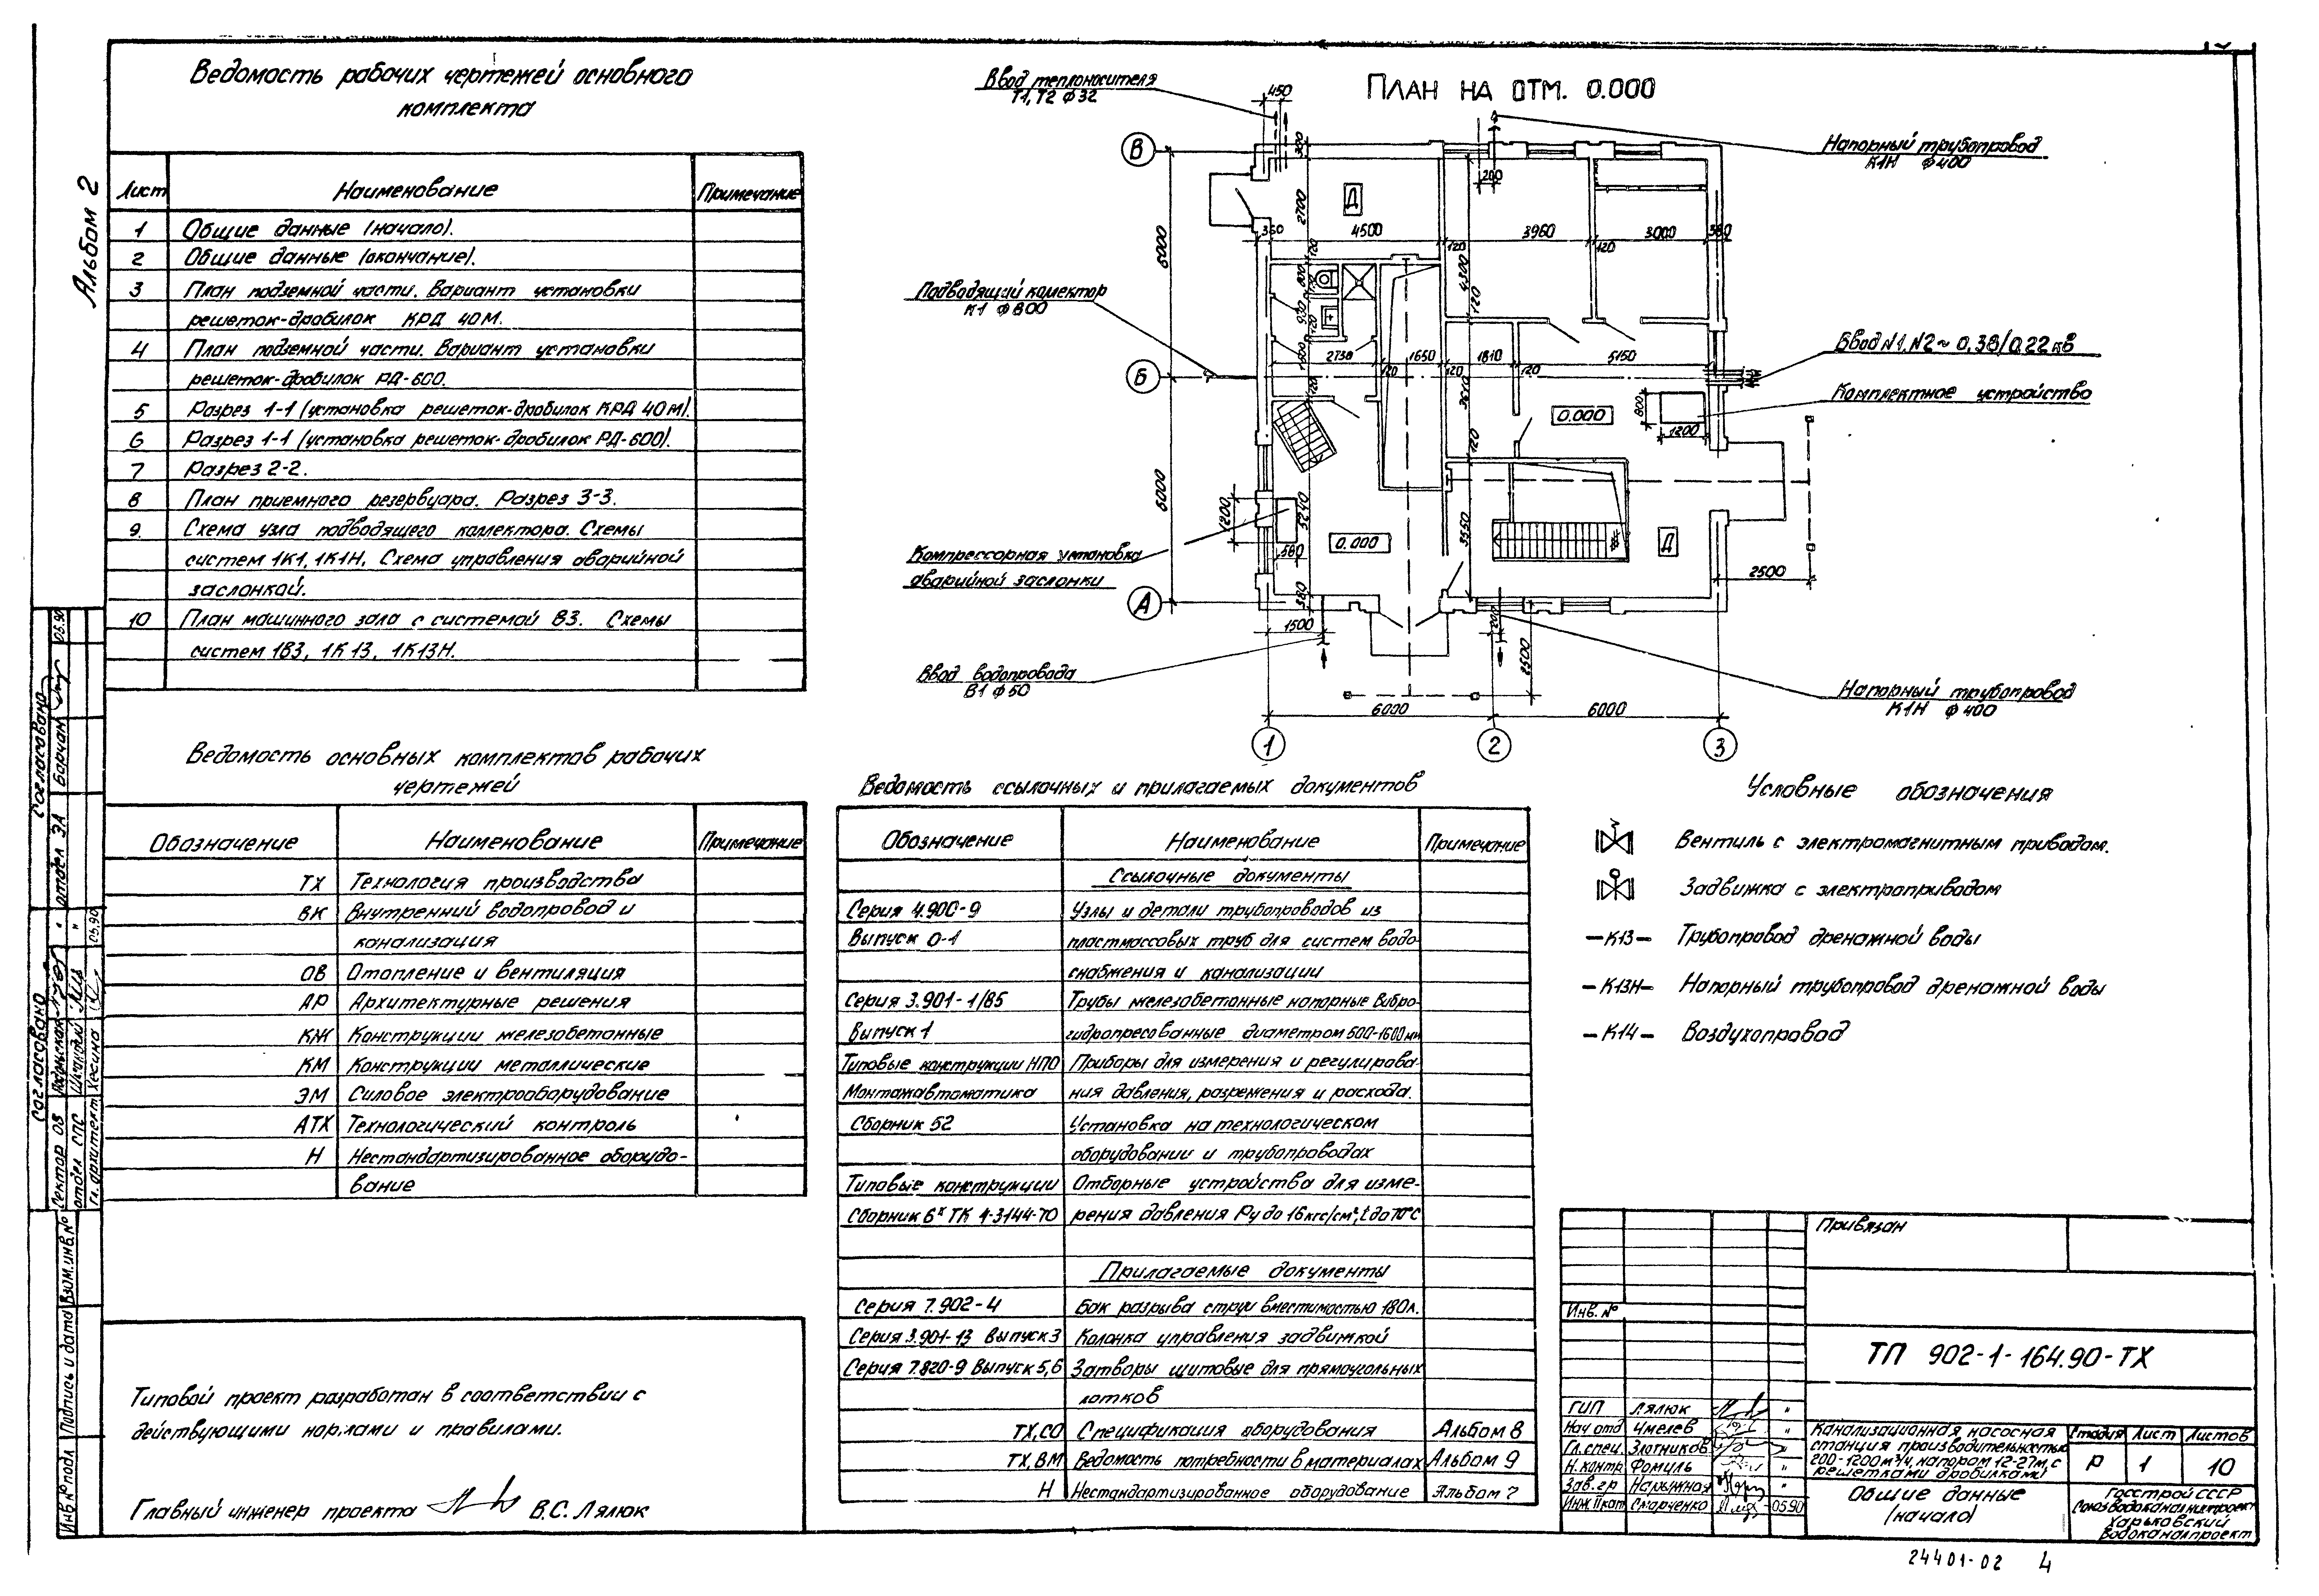 Альбом 2
Ведомость рабочих чертежей основного
комплекта
Лист Наименование Примечание
1 Общие данные (начало).
2 Общие данные (окончание).
3 План подземной части. Вариант установки
решеток-дробилок КРД 40М.
4 План подземной части. Вариант установки
решеток-дробилок РД-600.
5 Разрез 1-1 (установка решеток-дробилок КРД 40М).
6 Разрез 1-1 (установка решеток-дробилок РД-600).
7 Разрез 2-2.
8 План приемного резервуара. Разрез 3-3.
9. Схема узла подводящего коллектора. Схемы
систем 1К1, 1К1Н. Схема управления аварийной
заслонкой.
10 План машинного зала с системой В3. Схемы
систем 1В3, 1К13, 1К13Н.
Ведомость основных комплектов рабочих
чертежей
Обозначение Наименование Примечание
ТХ Технология производства
ВК Внутренний водопровод и
канализация
ОВ Отопление и вентиляция
АР Архитектурные решения
КЖ Конструкции железобетонные
КМ Конструкции металлические
ЭМ Силовое электрооборудование
АТХ Технологический контроль
Н Нестандартизированное оборудо-
вание
Типовой проект разработан в соответствии с
действующими нормами и правилами.
Главный инженер проекта В.С. Лялюк
ПЛАН НА ОТМ. 0.000
Ввод теплоносителя
Т1, Т2 ф32
450
Напорный трубопровод
К1Н ф400
В
Б
А
6000
6000
300
2700
200
Д
360 4500 120 3960 120 3000 380
4300
120
Подводящий коллектор
К1 ф800
2730 1650 1810 5150
120 120 120
Ввод N1, N2 ~ 0,38/0,22 кв
Комплектное устройство
800
1200
0.000
120
1200
5240
580
3550
0.000
Д
2500
Компрессорная установка
аварийной заслонки
380
1500
200
2500
Ввод водопровода
В1 ф50
6000 6000
Напорный трубопровод
К1Н ф400
1 2 3
Ведомость ссылочных и прилагаемых документов
Обозначение Наименование Примечание
Ссылочные документы
Серия 4.900-9 Узлы и детали трубопроводов из
Выпуск 0-1 пластмассовых труб для систем водо-
снабжения и канализации
Серия 3.901-1/85 Трубы железобетонные напорные вибро-
Выпуск 1 гидропресованные диаметром 500-1600 мм
Типовые конструкции НПО Приборы для измерения и регулирова-
Монтажавтоматика ния давления, разрежения и расхода.
Сборник 52 Установка на технологическом
оборудовании и трубопроводах
Типовые конструкции Отборные устройства для изме-
Сборник 6х ТК 4-3144-70 рения давления Ру до 16 кгс/см², t до 70°С
Прилагаемые документы
Серия 7.902-4 Бак разрыва струи вместимостью 180л.
Серия 3.901-13 Выпуск 3 Колонка управления задвижкой
Серия 7.820-9 Выпуск 5,6 Затворы щитовые для прямоугольных
лотков
ТХ,СО Спецификация оборудования Альбом 8
ТХ,ВМ Ведомость потребности в материалах Альбом 9
Н Нестандартизированное оборудование Альбом 7
Условные обозначения
Вентиль с электромагнитным приводом.
Задвижка с электроприводом
-К13- Трубопровод дренажной воды
-К13Н- Напорный трубопровод дренажной воды
-К14- Воздухопровод
Привязан
Инв. №
ТП 902-1-164.90-ТХ
ГИП Лялюк
Нач отд Чмелев
Гл. спец. Злотников
Н. контр. Фомуль
Зав. гр Нарыжная
Инж. II кат Смарченко 05.90
Канализационная насосная
станция производительностью
200-1200 м³/ч, напором 12-27м, с
решетками дробилками
Стадия Лист Листов
Р 1 10
Общие данные
(начало)
Госстрой СССР
Союзводоканалниипроект
Харьковский
Водоканалпроект
24401-02 4
Согласовано
отдел ЭА Борчан 05.90
Согласовано
Сектор ОВ
отдел СПС
Гл. архитект Хесина 05.90
Инв № подл Подпись и дата Взам. инв. №